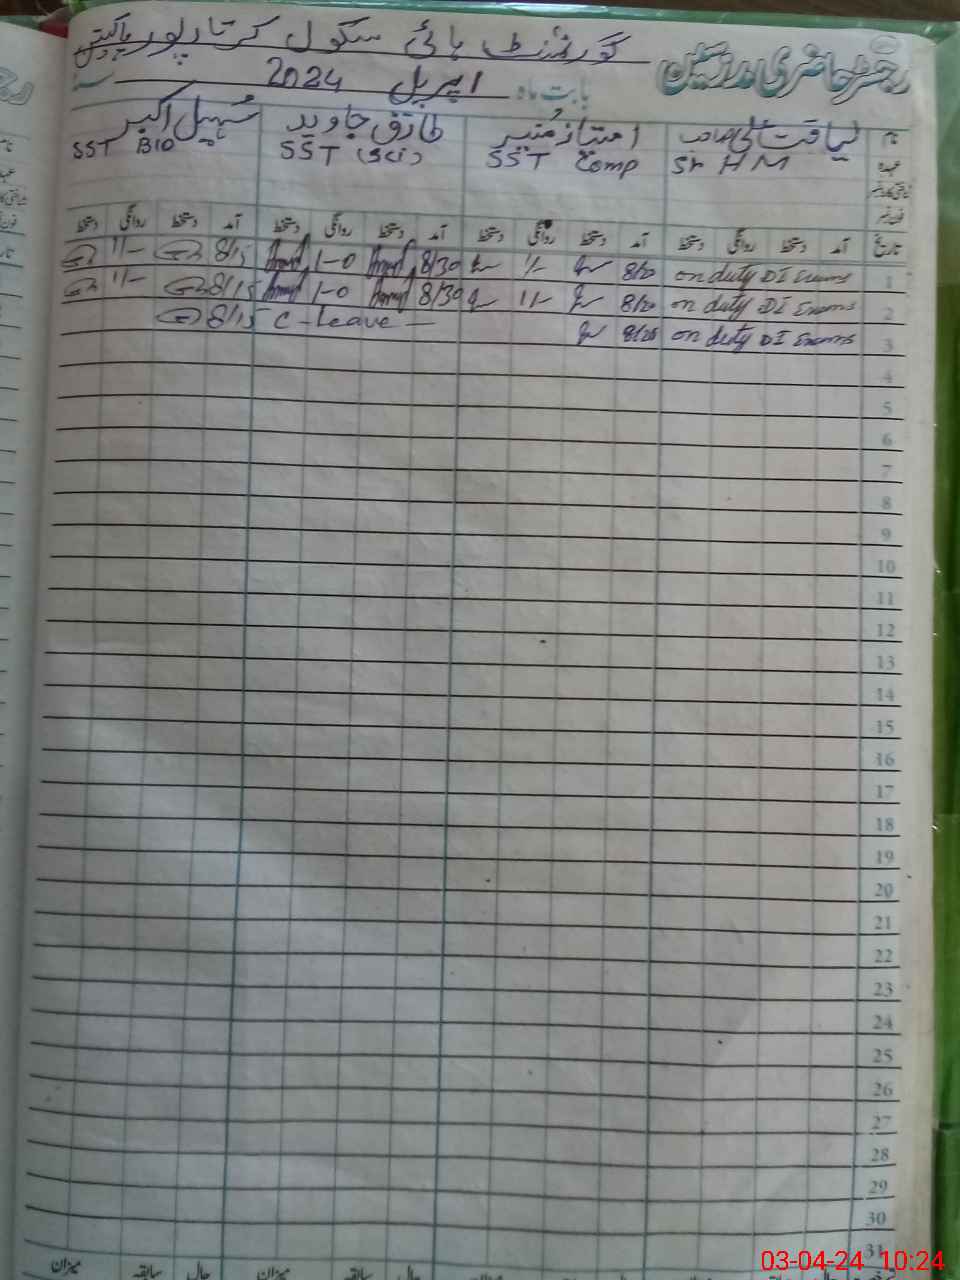 رجسٹر حاضری مدرسین گورنمنٹ ہائی سکول کرتارپور پاکپتن
بابت ماہ اپریل 2024 سنہ
نام لیاقت علی صاحب امتیاز منیر طارق جاوید سہیل اکبر
عہدہ Sr H M SST Comp SST (Sci) SST BIO
تاریخ آمد دستخط روانگی دستخط آمد دستخط روانگی دستخط آمد دستخط روانگی دستخط آمد دستخط روانگی دستخط
1 on duty DI Exams 8/20 1/- 8/30 1-0 8/15 11/-
2 on duty DI Exams 8/20 11/- 8/30 1-0 8/15 11/-
3 on duty DI Exams 8/25 C-leave 8/15
4
5
6
7
8
9
10
11
12
13
14
15
16
17
18
19
20
21
22
23
24
25
26
27
28
29
30
31
حال سابقہ میزان حال سابقہ میزان
03-04-24 10:24